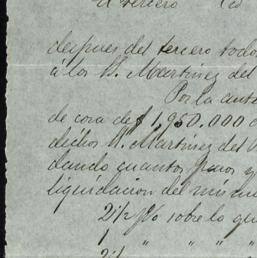 el tercero
despues del tercero todo
á los H. Martinez del
Por la ante
de cora de $1,950.000
dichos H. Martinez del
dando cuantos pasos y
liquidacion del mismo
2 1/2 p% sobre lo que
1 " " "
2 1/2 "